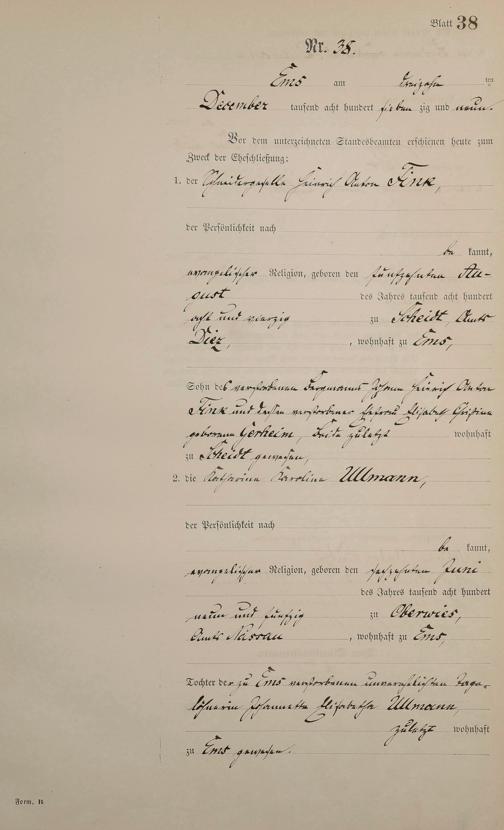 Blatt 38
Nr. 38.
Ems am dreizehn ten
December tausend acht hundert sieben zig und neun.
Vor dem unterzeichneten Standesbeamten erschienen heute zum
Zweck der Eheschließung:
1. der Schneidergeselle Heinrich Anton Fink,
der Persönlichkeit nach
be kannt,
evangelischer Religion, geboren den fünfzehnten Au-
gust des Jahres tausend acht hundert
acht und vierzig zu Scheidt, Amts
Diez, , wohnhaft zu Ems,
Sohn des verstorbenen Bergmanns Johann Heinrich Anton
Fink und dessen verstorbener Ehefrau Elisabeth Christina
geborene Gerheim, Beide zuletzt wohnhaft
zu Scheidt gewesen,
2. die Katharina Karolina Ullmann,
der Persönlichkeit nach
be kannt,
evangelischer Religion, geboren den sechzehnten Juni
des Jahres tausend acht hundert
neun und fünfzig zu Oberwies,
Amts Nassau , wohnhaft zu Ems,
Tochter der zu Ems verstorbenen unverehelichten Tage-
löhnerin Johannetta Elisabetha Ullmann,
zuletzt wohnhaft
zu Ems gewesen.
Form. B